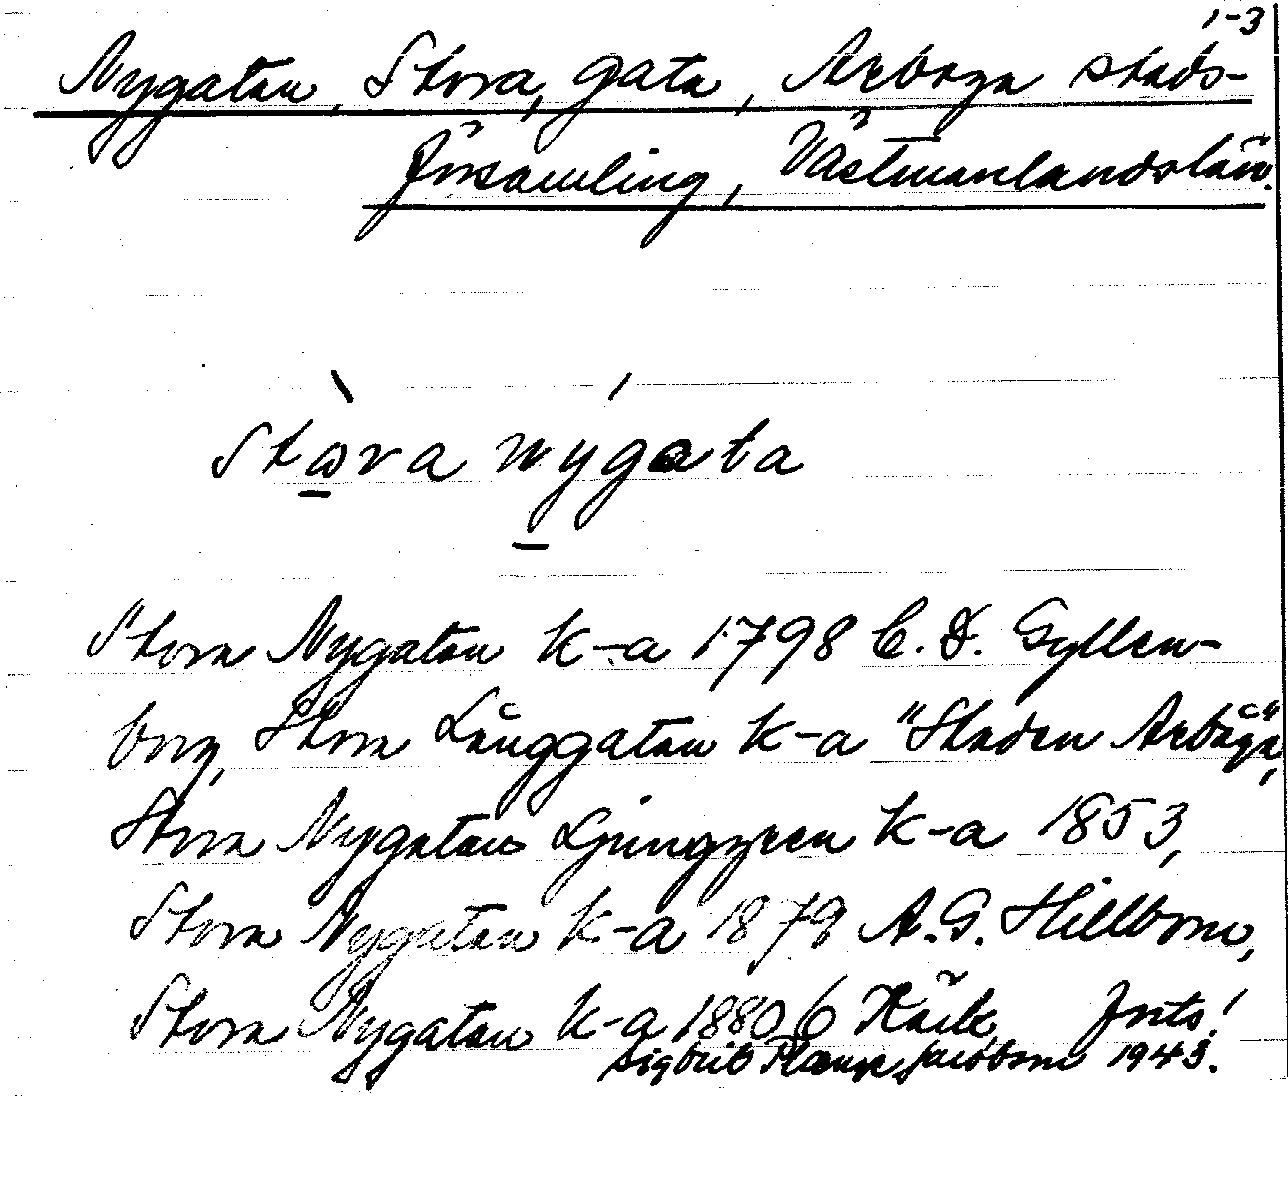 1-3
Nygatan, Stora, gata, Arboga stads-
församling, Västmanlands län.
stωra nýgata
Stora Nygatan k-a 1798 C. D. Gyllen-
borg, Stora Långgatan k-a "Staden Arboga",
Stora Nygatan Ljunggren k-a 1853,
Stora Nygatan k-a 1879 A. G. Hillbom,
Stora Nygatan k-a 1880 Forts!
Sigbrit Plænge Jacobson 1943.